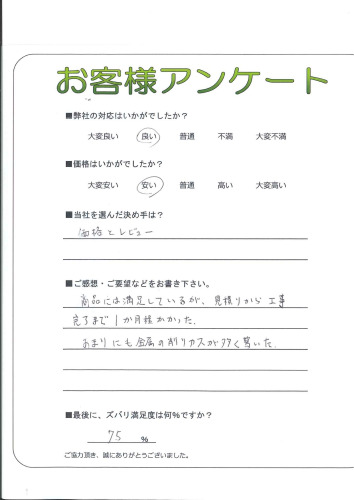 お客様アンケート
■弊社の対応はいかがでしたか?
大変良い 良い 普通 不満 大変不満
■価格はいかがでしたか?
大変安い 安い 普通 高い 大変高い
■当社を選んだ決め手は?
価格とレビュー
■ご感想・ご要望などをお書き下さい。
商品には満足しているが、見積りから工事
完了まで1か月様かかった。
あまりにも金属の削りカスが多く驚いた.
■最後に、ズバリ満足度は何%ですか?
75 %
ご協力頂き、誠にありがとうございました。